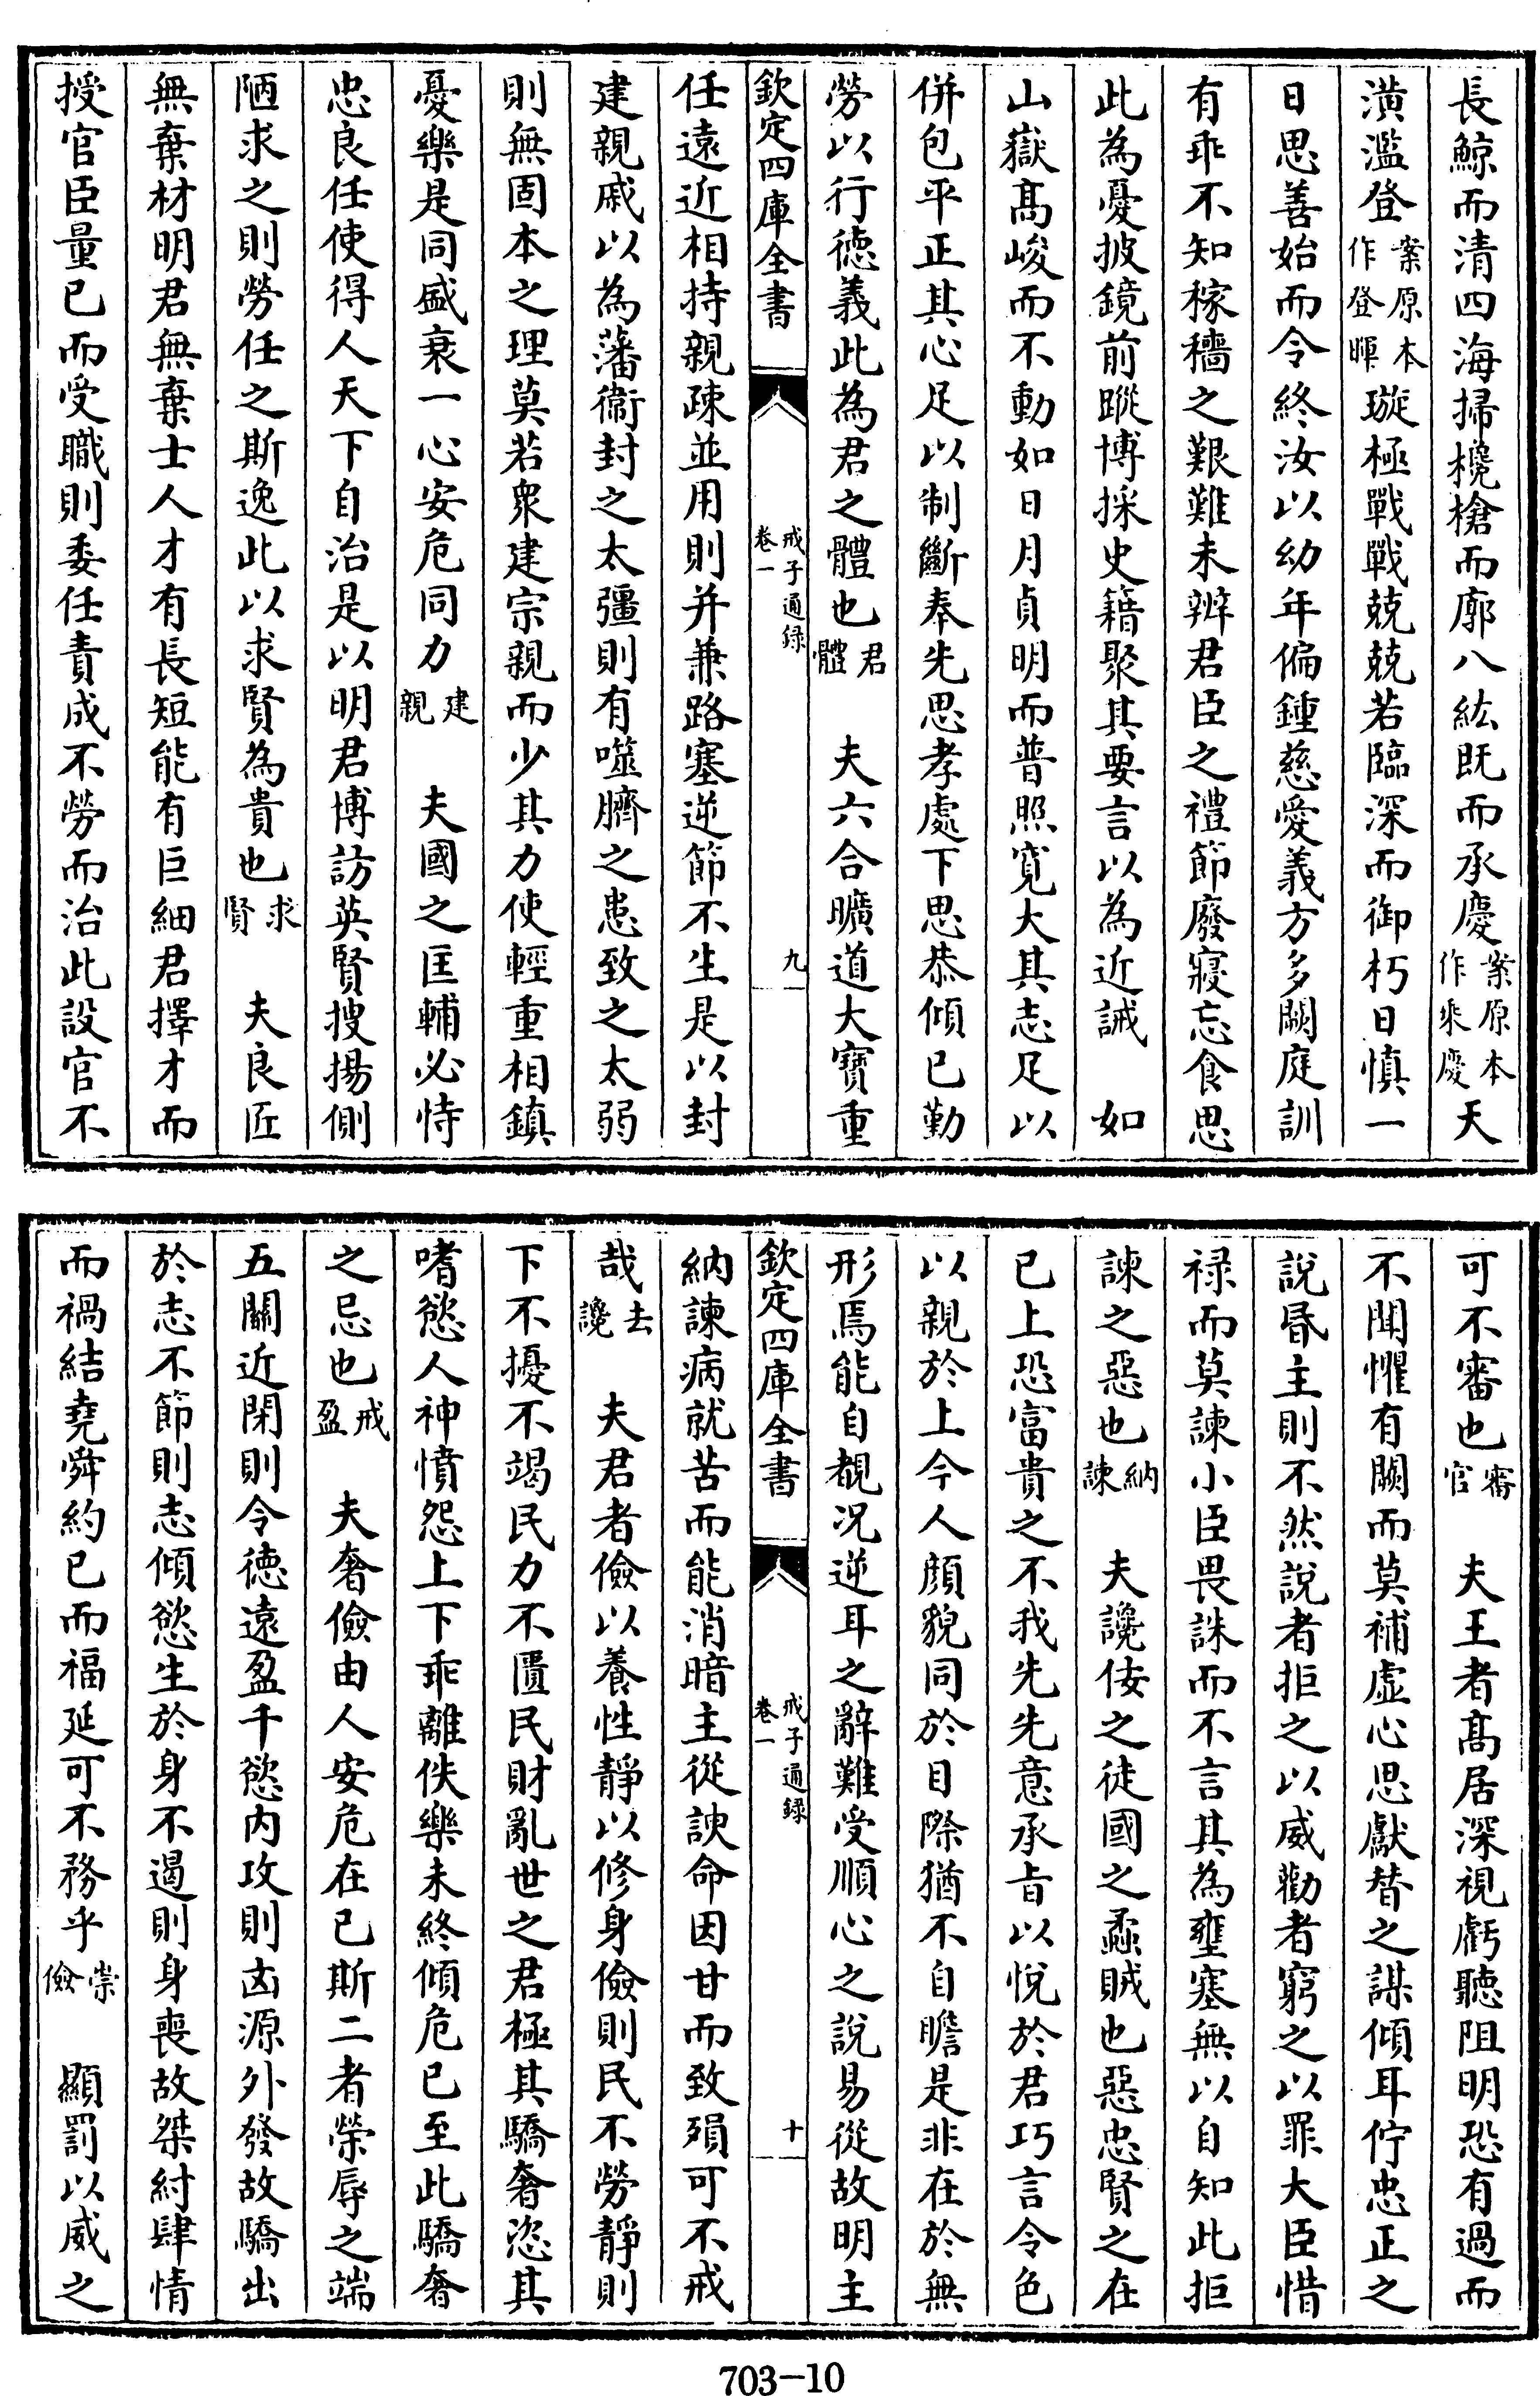 長鯨而清四海掃欃槍而廓八紘既而承慶案原本作乘慶天
潢濫登案原本作登暉璇極戰戰兢兢若臨深而御朽日慎一
日思善始而令終汝以幼年偏鍾慈愛義方多闕庭訓
有乖不知稼穡之艱難未辨君臣之禮節廢寢忘食思
此為憂披鏡前蹤博採史籍聚其要言以為近誡　如
山嶽髙峻而不動如日月貞明而普照寛大其志足以
併包平正其心足以制斷奉先思孝處下思恭傾已勤
勞以行徳義此為君之體也君體　夫六合曠道大寶重
欽定四庫全書　戒子通録卷一　九
任遠近相持親疎並用則并兼路塞逆節不生是以封
建親戚以為藩衞封之太彊則有噬臍之患致之太弱
則無固本之理莫若衆建宗親而少其力使輕重相鎮
憂樂是同盛衰一心安危同力建親　夫國之匡輔必恃
忠良任使得人天下自治是以明君博訪英賢搜揚側
陋求之則勞任之斯逸此以求賢為貴也求賢　夫良匠
無棄材明君無棄士人才有長短能有巨細君擇才而
授官臣量已而受職則委任責成不勞而治此設官不
可不審也審官　夫王者髙居深視虧聽阻明恐有過而
不聞懼有闕而莫補虚心思獻替之謀傾耳佇忠正之
說昬主則不然說者拒之以威勸者窮之以罪大臣惜
禄而莫諫小臣畏誅而不言其為壅塞無以自知此拒
諫之惡也納諫　夫讒佞之徒國之蟊賊也惡忠賢之在
已上恐富貴之不我先先意承旨以悅於君巧言令色
以親於上今人顔貌同於目際猶不自瞻是非在於無
形焉能自覩况逆耳之辭難受順心之說易從故明主
欽定四庫全書　戒子通録卷一　十
納諫病就苦而能消暗主從諛命因甘而致殞可不戒
哉去讒　夫君者儉以養性靜以修身儉則民不勞靜則
下不擾不竭民力不匱民財亂世之君極其驕奢恣其
嗜慾人神憤怨上下乖離佚樂未終傾危已至此驕奢
之忌也戒盈　夫奢儉由人安危在已斯二者榮辱之端
五關近閉則令徳遠盈千慾内攻則凶源外發故驕出
於志不節則志傾慾生於身不遏則身喪故桀紂肆情
而禍結堯舜約已而福延可不務乎崇儉　顯罰以威之
703-10